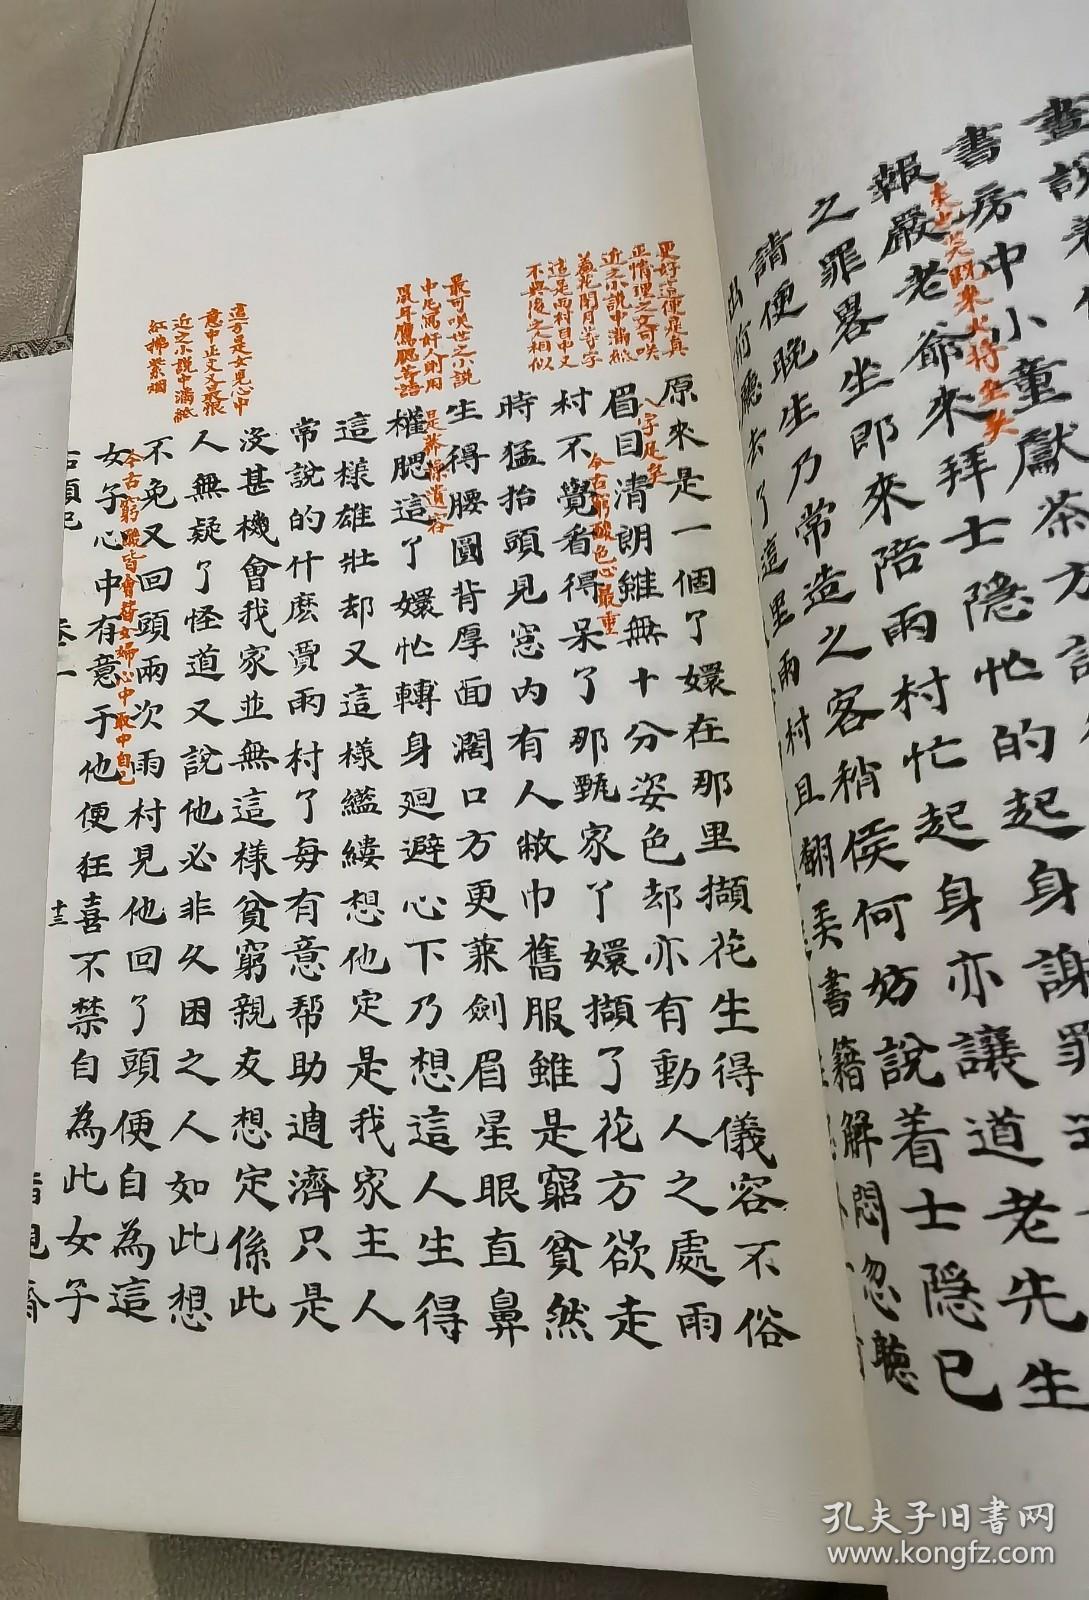 畫
書房中小童獻茶方
報嚴老爺來拜士隱忙的起身謝罪
之罪畧坐即來陪雨村忙起身亦讓道老先生
請便晚生乃常造之客稍候何妨說着士隱已
出前廳去了這里雨村且翻美書籍解悶忽聽
未也笑既來火將至矣
更好這便是真
正情理之文可咲
近之小說中滿紙
羞花閉月等字
這是雨村目中又
不與後之人相似
最可咲世之小說
中凡寫奸人則用
鼠耳鷹腮等語
這方是女兒心中
意中正文又最恨
近之小說中滿紙
紅拂紫烟
原來是一個了嬛在那里擷花生得儀容不俗
眉目清朗雖無十分姿色却亦有動人之處雨
八字足矣
村不覺看得呆了那甄家丫嬛擷了花方欲走
今古窮酸色心最重
時猛抬頭見窓內有人敝巾舊服雖是窮貧然
生得腰圓背厚面濶口方更兼劍眉星眼直鼻
是莽操遺容
權腮這了嬛忙轉身廻避心下乃想這人生得
這樣雄壯却又這樣繿縷想他定是我家主人
常說的什麽賈雨村了每有意帮助週濟只是
没甚機會我家並無這樣貧窮親友想定係此
人無疑了怪道又說他必非久困之人如此想
不免又回頭兩次雨村見他回了頭便自為這
今古窮酸皆會替女婦心中取中自己
女子心中有意于他便狂喜不禁自為此女子
石頭記 卷一 十三 脂硯齋
孔夫子旧书网
www.kongfz.com